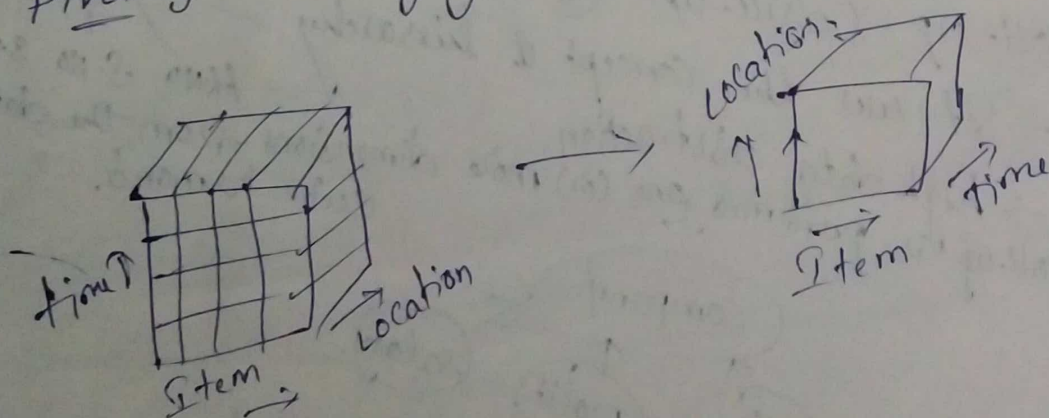 time
Item
Location
Location
Item
time